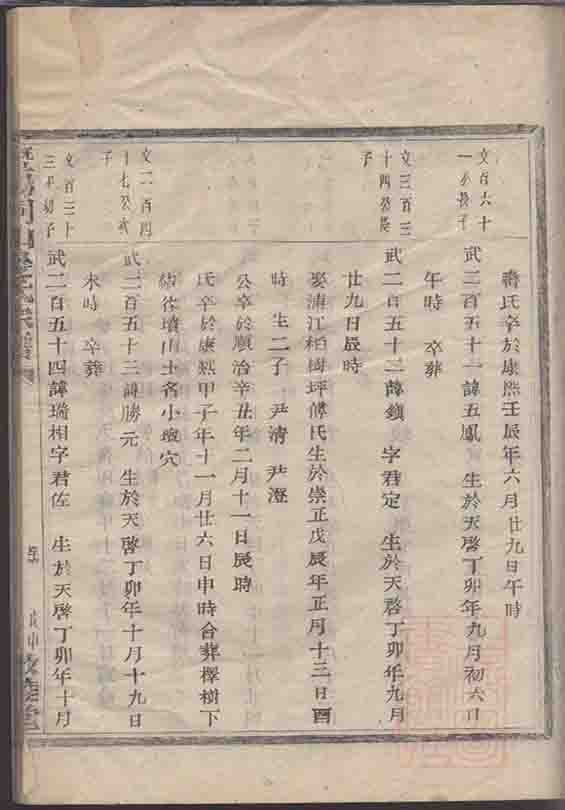 蔣氏卒於康熙壬辰年六月廿九日午時
文百六十
一
武二百五十一諱五鳳 生於天啓丁卯年九月初六日
午時 卒葬
文三百三
十四
子
武二百五十二諱鎮 字君定 生於天啓丁卯年九月
廿九日辰時
娶浦江栢樹坪傅氏生於崇正戊辰年正月十三日酉
時 生二子 尹清 尹澄
公卒於順治辛丑年二月十一日辰時
氏卒於康熙甲子年十一月廿六日申時合葬檡樹下
墳山土名小壠穴
文二百四
十七癸亥
子
武二百五十三諱勝元 生於天啓丁卯年十月十九日
未時 卒葬
文百三十
三
武二百五十四諱瑞相字君佐 生於天啓丁卯年十月